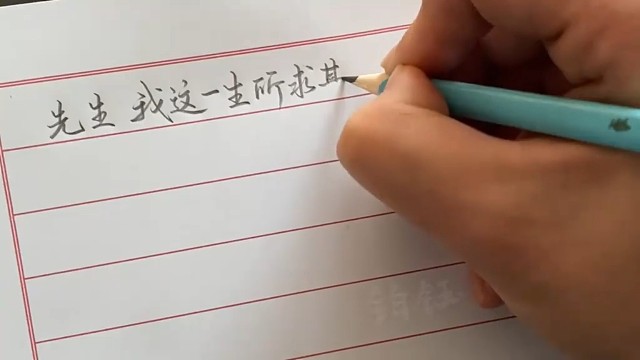 先生 我这一生所求其